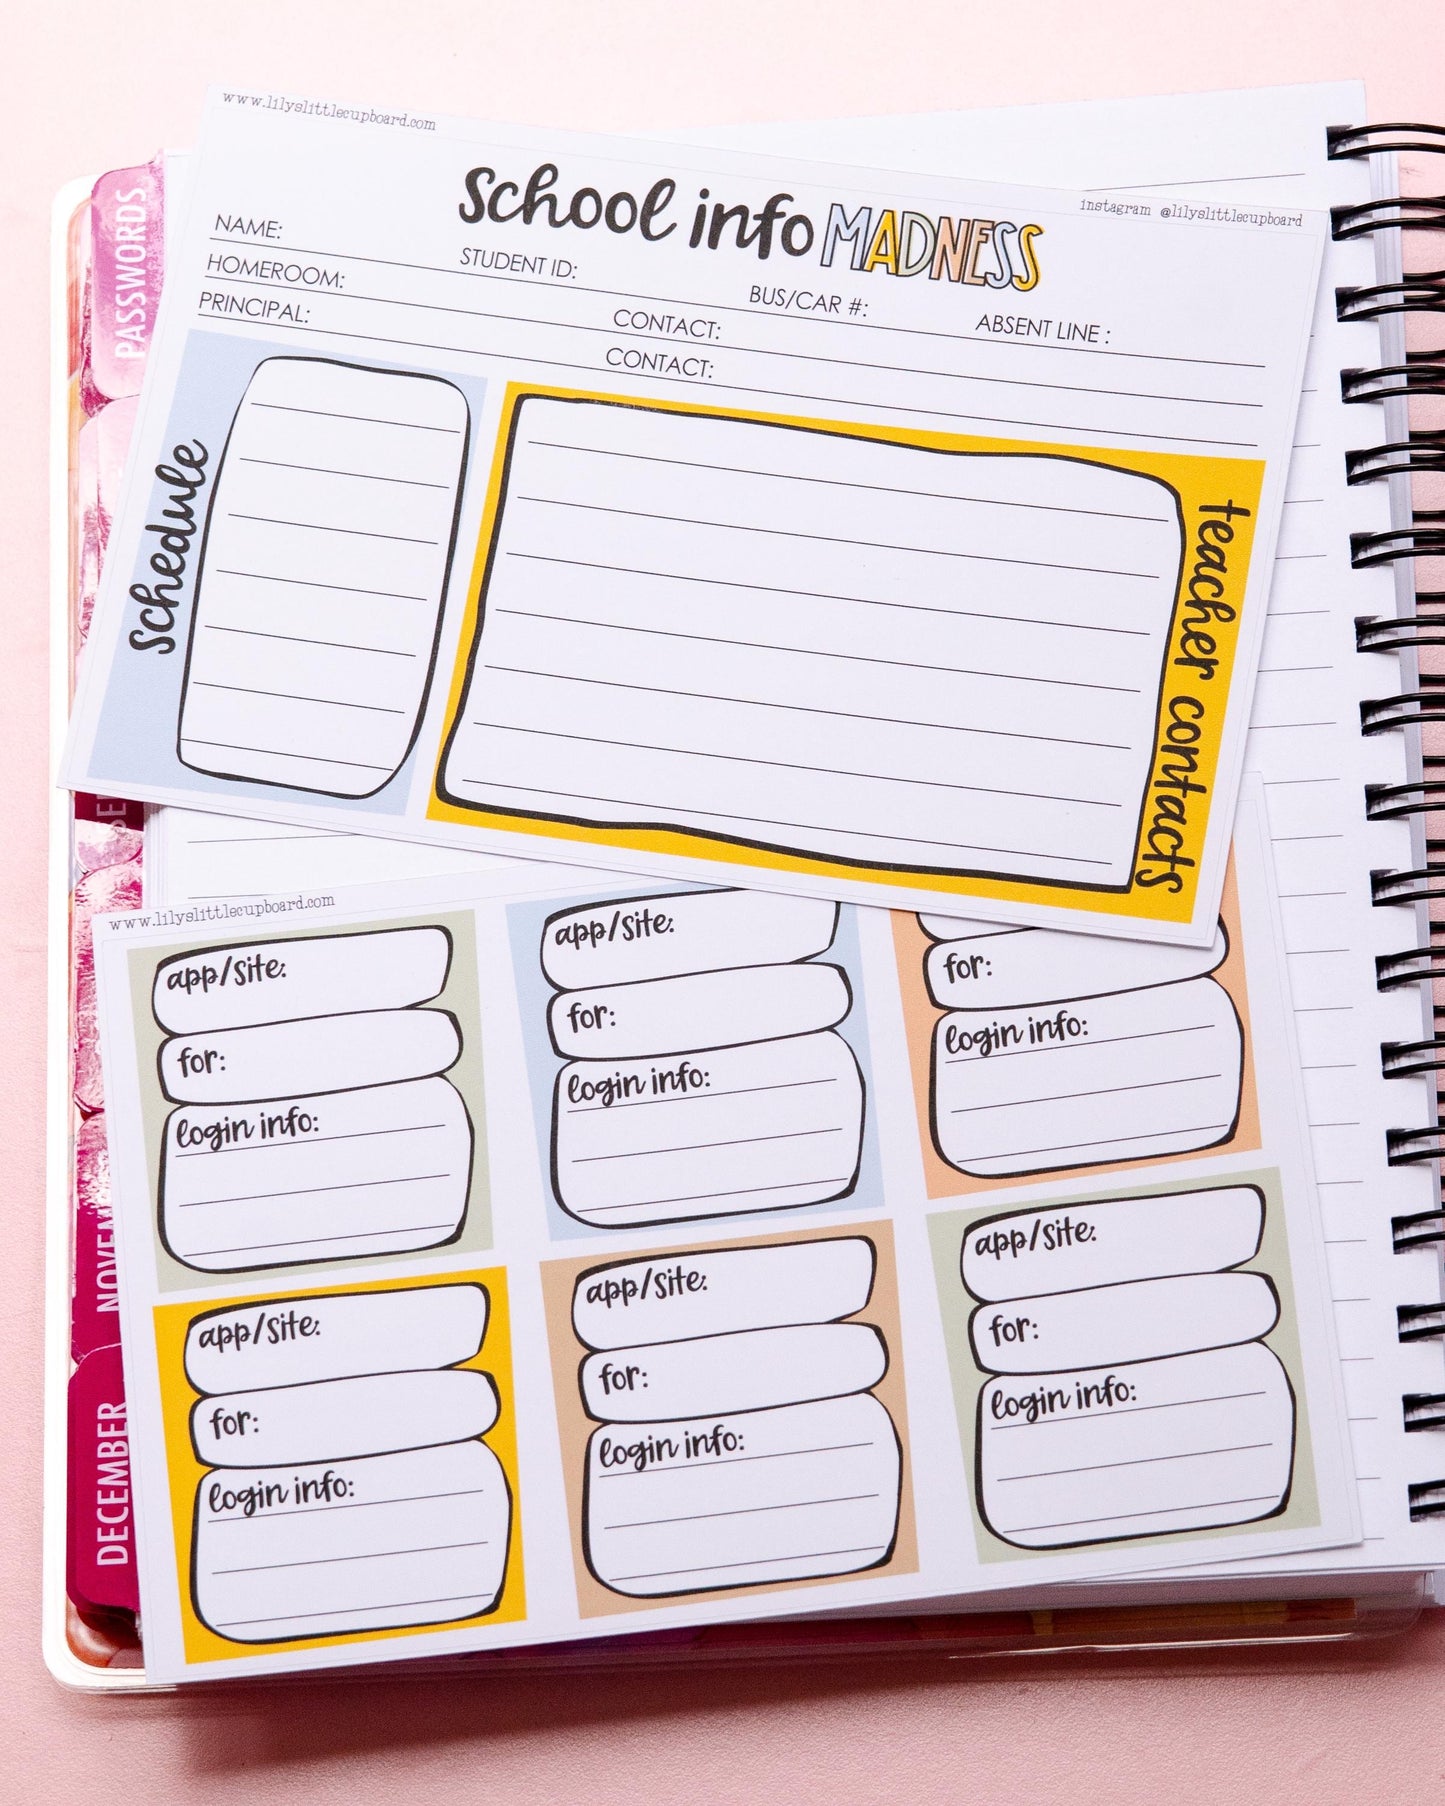 www.lilyslittlecupboard.com
school info MADNESS
instagram @lilyslittlecupboard
NAME: STUDENT ID: BUS/CAR #: ABSENT LINE :
HOMEROOM: CONTACT:
PRINCIPAL: CONTACT:
schedule
teacher contacts
www.lilyslittlecupboard.com
app/site:
for:
login info:
app/site:
for:
login info:
for:
login info:
app/site:
for:
login info:
app/site:
for:
login info:
app/site:
for:
login info:
PASSWORDS
DECEMBER